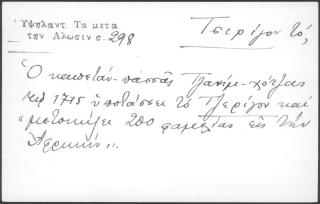 Ὑψηλαντ. Τα μετα
την Αλωσιν σ. 298
Τσιρίγον τό,
Ὁ καπετάν-πασσᾶς Τζανίμ-χότζας
τῷ 1715 ὑποτάσσει τό Τζερίγον καί
"μετοικίζει 200 φαμελίας εἰς τήν
Ἀφρικήν".